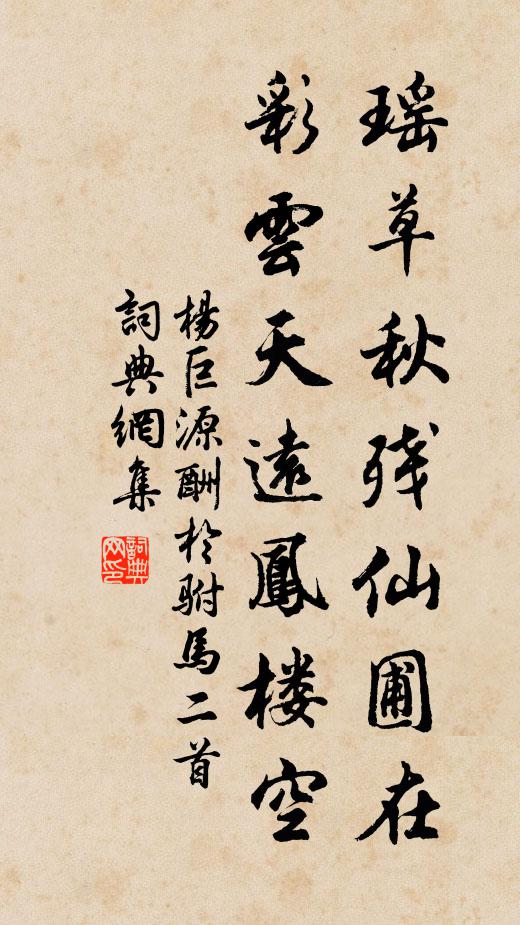 瑶草秋殘仙圃在
彩雲天遠鳳楼空
楊巨源酬於駙馬二首
詞典網集
詞典
网印